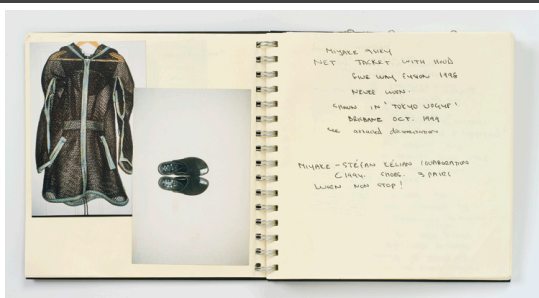 MIYAKE ISSEY
NET JACKET WITH HOOD
1998
NEVER WORN.
SHOWN IN 'TOKYO VOGUE'
BRISBANE OCT. 1999
see attached documentation
MIYAKE - STÉFAN KÉLIAN COLLABORATION
C1994. SHOES. 3 PAIRS
WORN NON STOP!